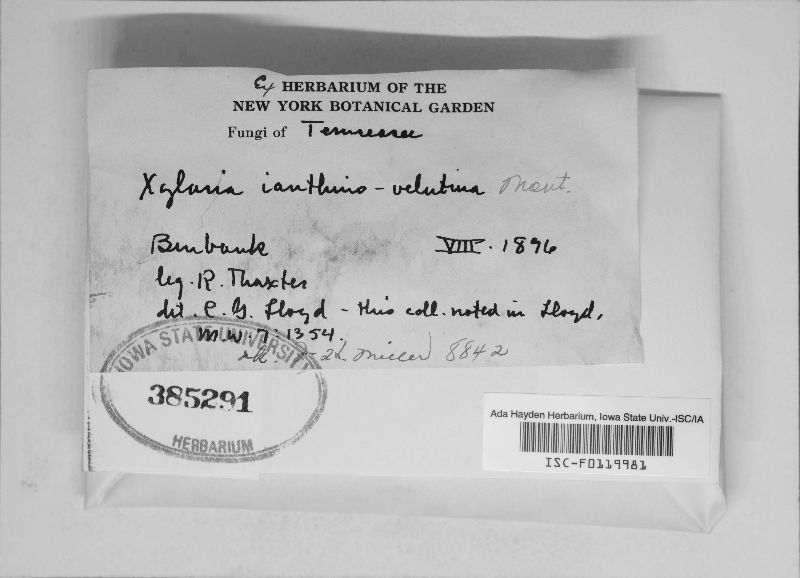 Ex HERBARIUM OF THE
NEW YORK BOTANICAL GARDEN
Fungi of Tennessee
Xylaria ianthino-velutina Mont.
Burbank VIII. 1896
leg. R. Thaxter
det. C. G. Lloyd - this coll. noted in Lloyd,
M.W. 7:1354.
Miller 8842
IOWA STATE UNIVERSITY
385291
HERBARIUM
Ada Hayden Herbarium, Iowa State Univ.-ISC/IA
ISC-F0119981